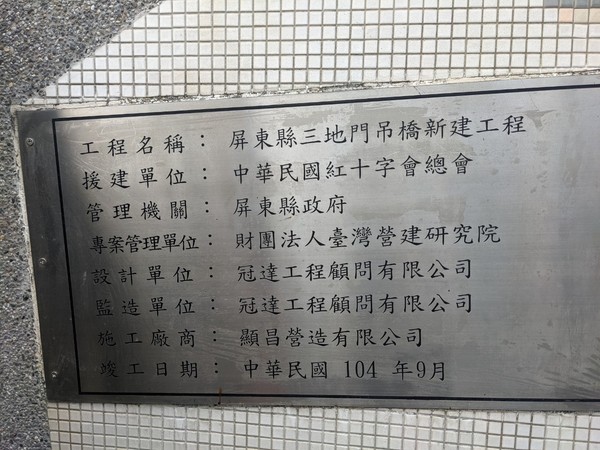 工程名稱： 屏東縣三地門吊橋新建工程
援建單位： 中華民國紅十字會總會
管理機關： 屏東縣政府
專案管理單位： 財團法人臺灣營建研究院
設計單位： 冠達工程顧問有限公司
監造單位： 冠達工程顧問有限公司
施工廠商： 顯昌營造有限公司
竣工日期： 中華民國 104 年9月